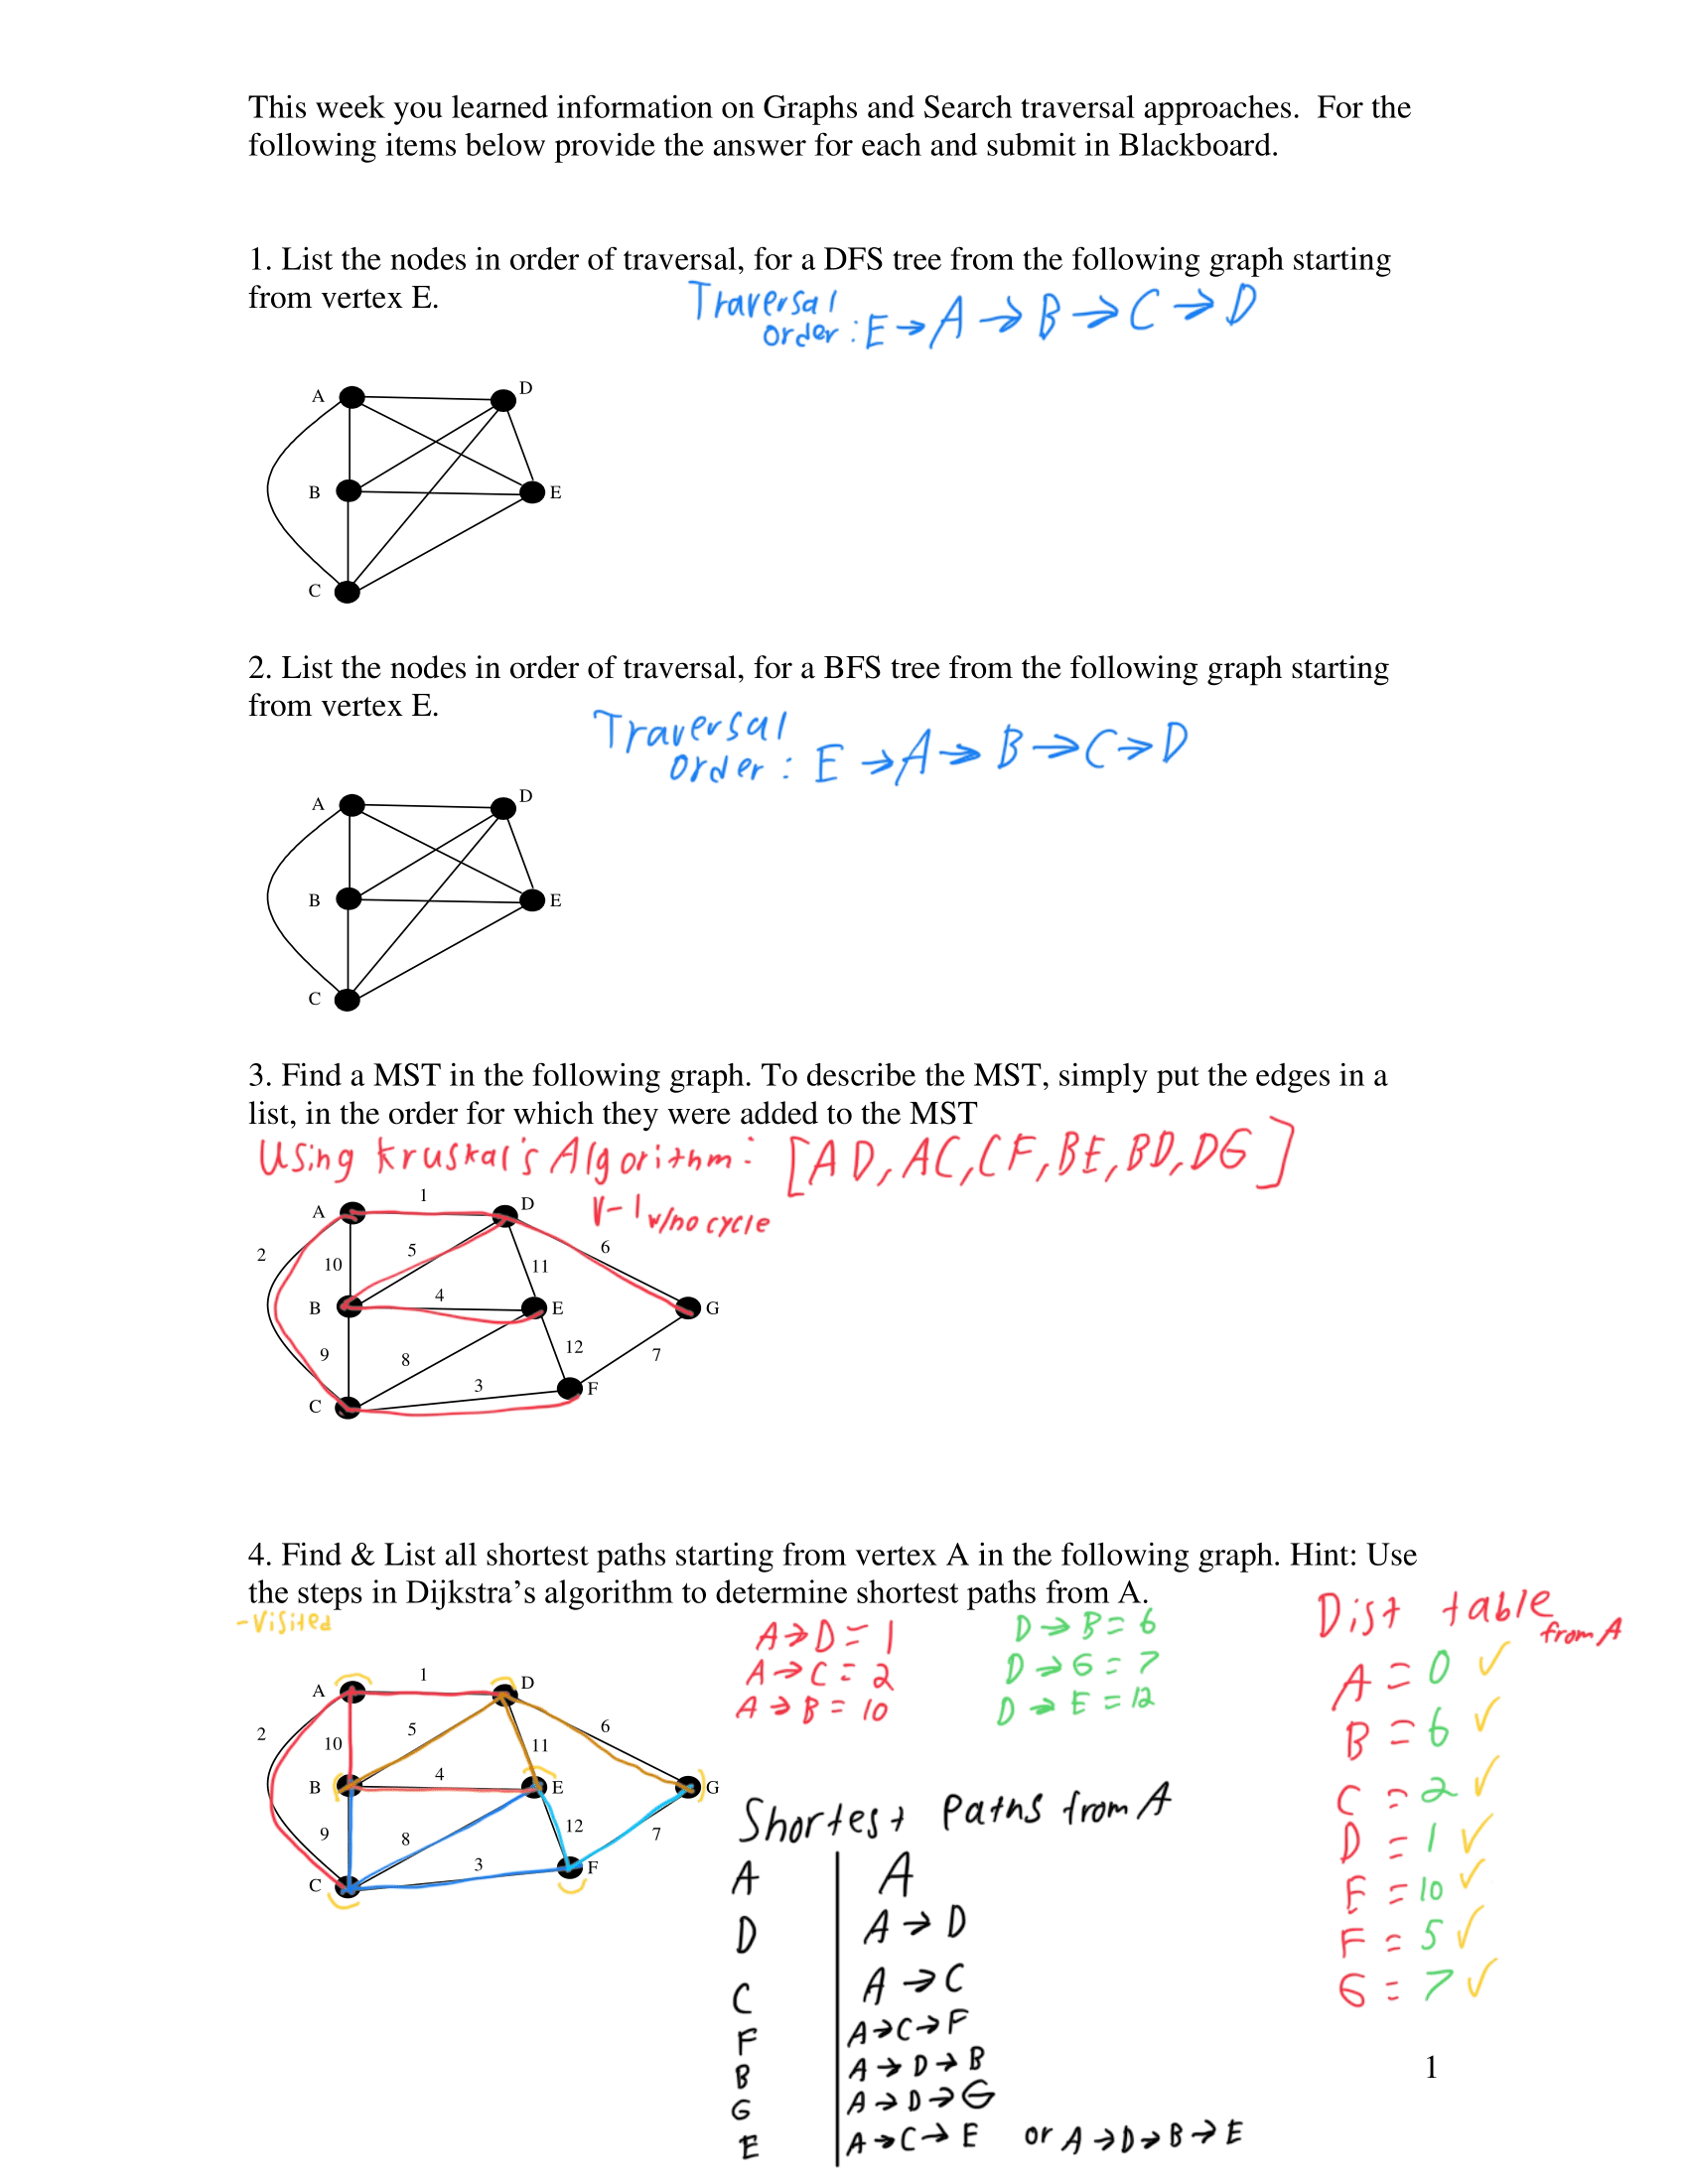 This week you learned information on Graphs and Search traversal approaches.  For the
following items below provide the answer for each and submit in Blackboard.
1. List the nodes in order of traversal, for a DFS tree from the following graph starting
from vertex E.
Traversal
order : E → A → B → C → D
A
D
B
E
C
2. List the nodes in order of traversal, for a BFS tree from the following graph starting
from vertex E.
Traversal
order : E → A → B → C → D
A
D
B
E
C
3. Find a MST in the following graph. To describe the MST, simply put the edges in a
list, in the order for which they were added to the MST
Using Kruskal's Algorithm: [AD, AC, CF, BE, BD, DG]
V-1 w/no cycle
1
A
D
2
10
5
11
6
B
4
E
G
9
8
12
7
3
F
C
4. Find & List all shortest paths starting from vertex A in the following graph. Hint: Use
the steps in Dijkstra’s algorithm to determine shortest paths from A.
-Visited
1
A
D
2
10
5
11
6
B
4
E
G
9
8
12
7
3
F
C
A → D = 1
A → C = 2
A → B = 10
D → B = 6
D → G = 7
D → E = 12
Dist table
from A
A = 0 ✓
B = 6 ✓
C = 2 ✓
D = 1 ✓
E = 10 ✓
F = 5 ✓
G = 7 ✓
Shortest Paths from A
A | A
D | A → D
C | A → C
F | A → C → F
B | A → D → B
G | A → D → G
E | A → C → E or A → D → B → E
1